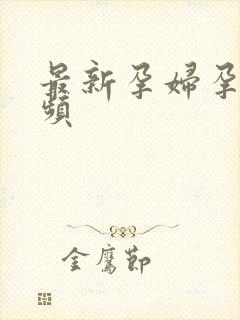 最新孕婦孕
頻
金鷹節